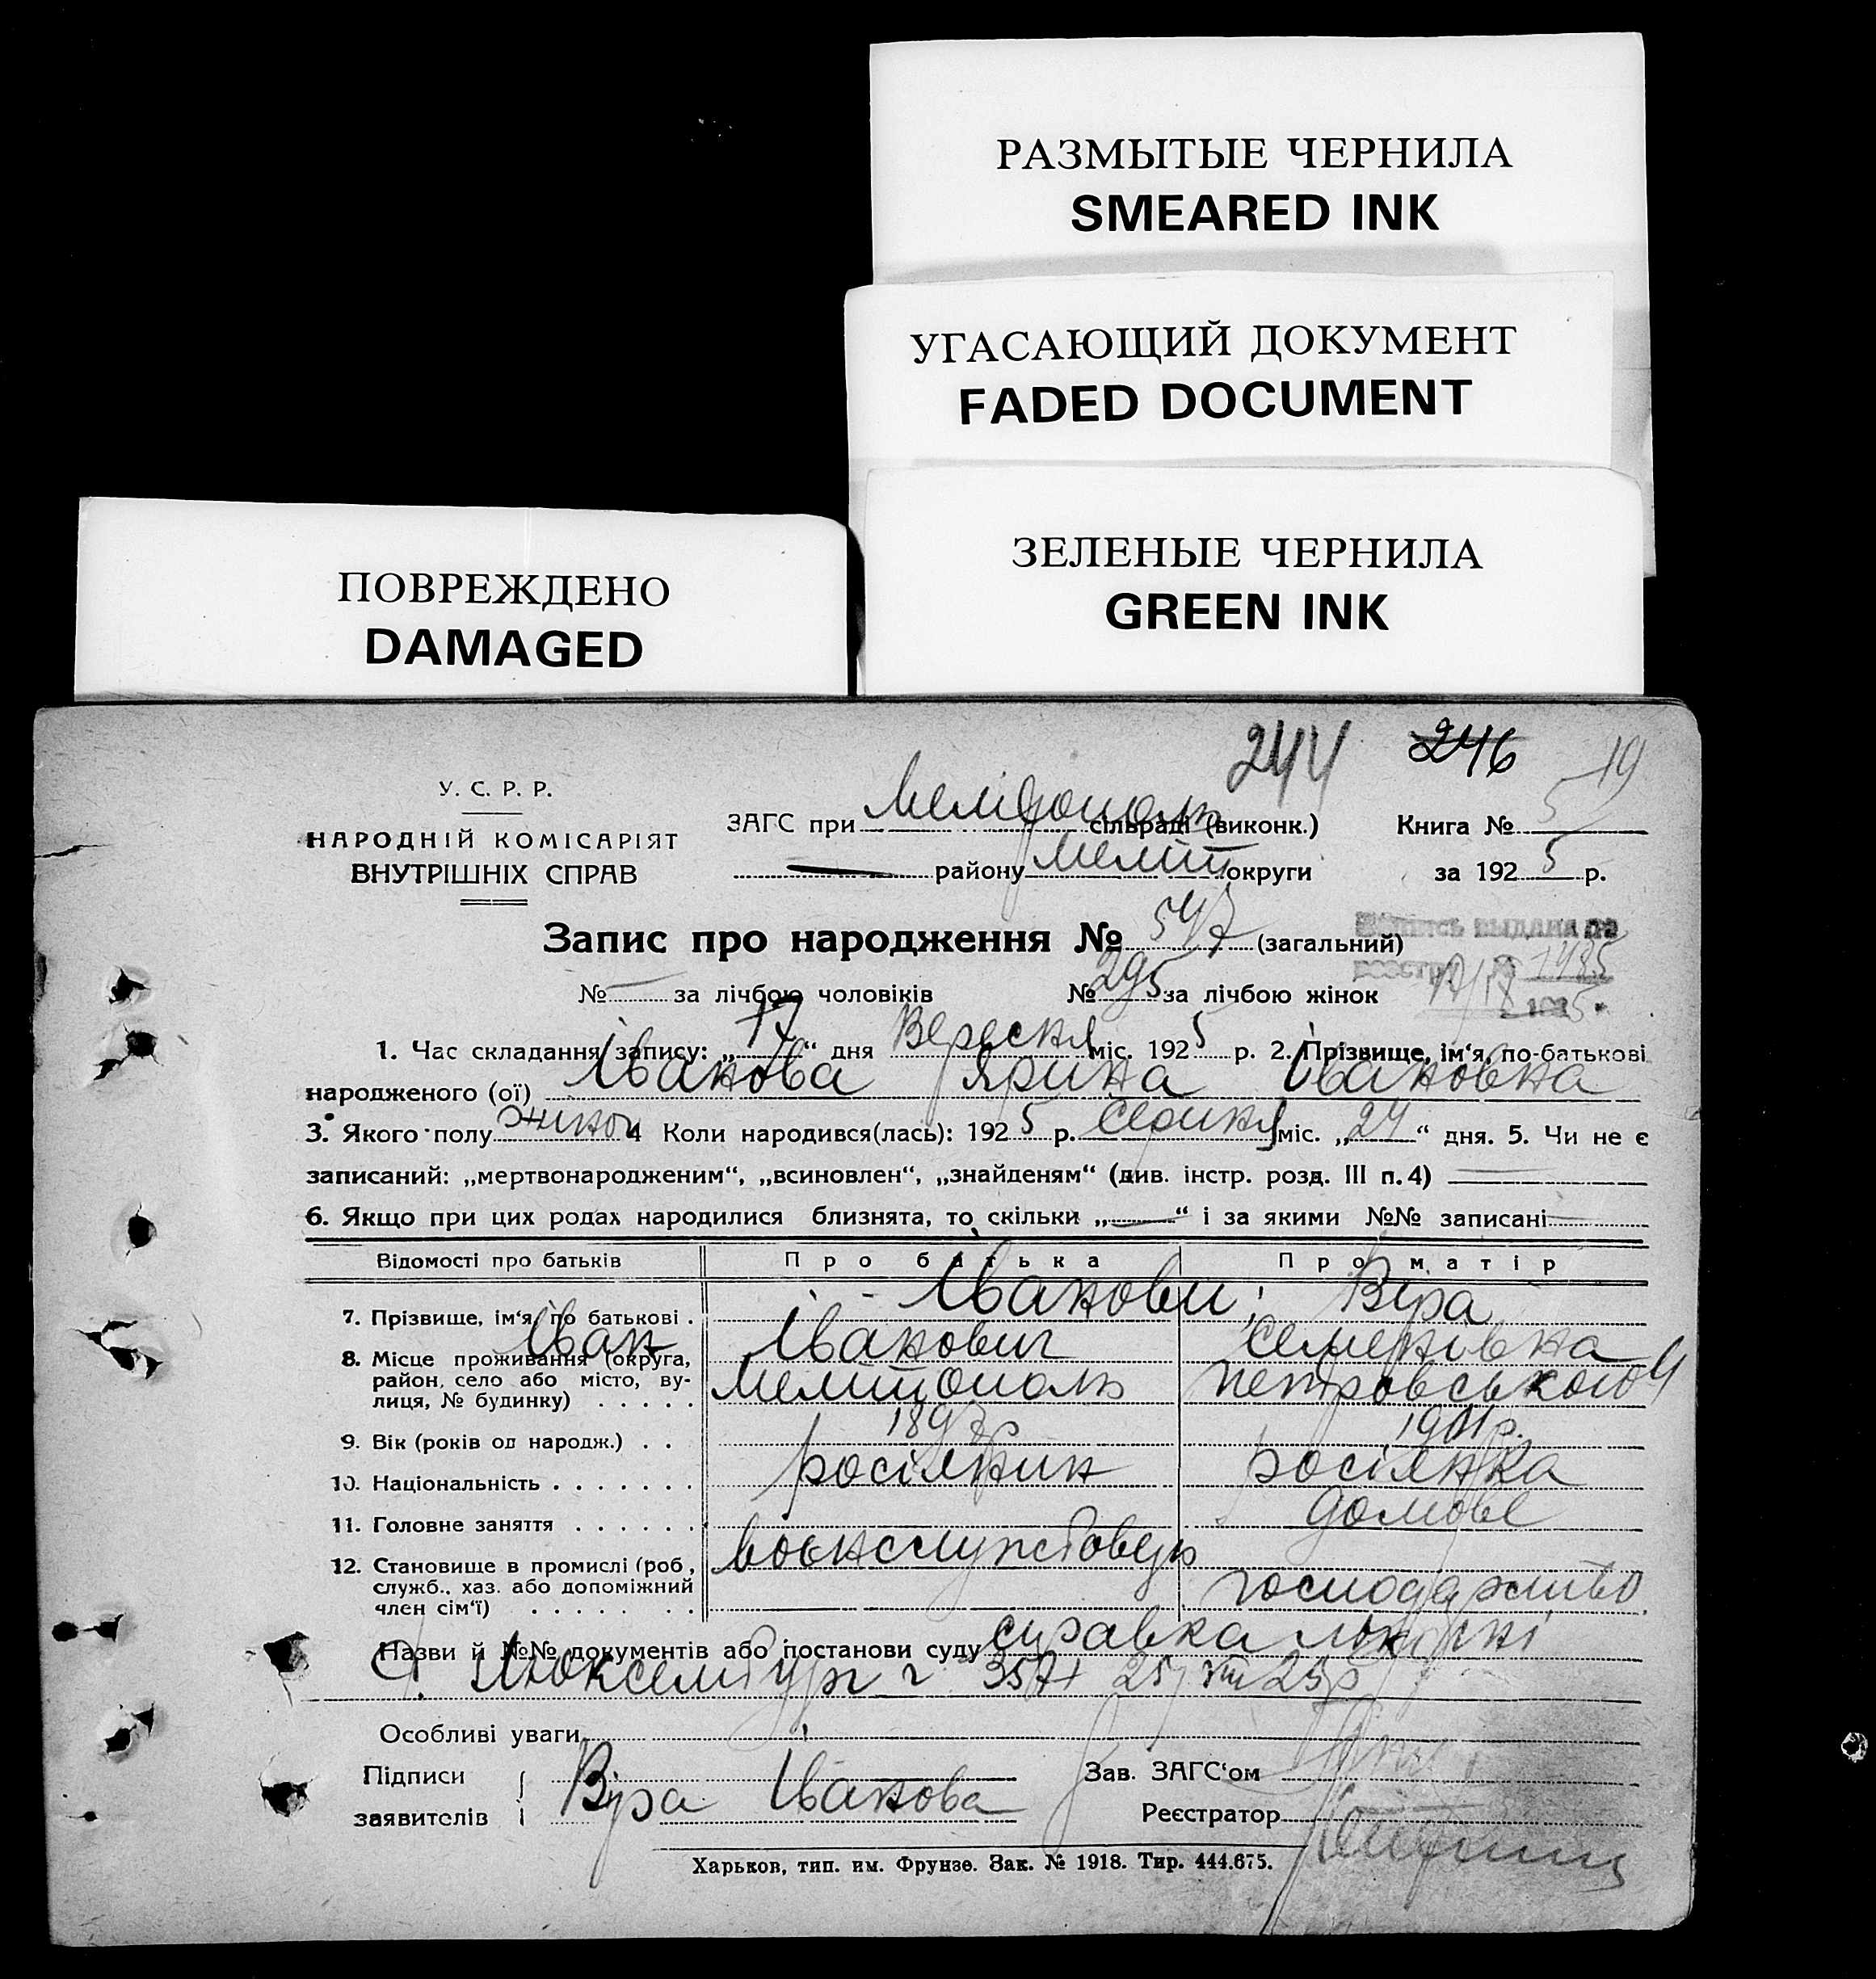 РАЗМЫТЫЕ ЧЕРНИЛА
SMEARED INK
УГАСАЮЩИЙ ДОКУМЕНТ
FADED DOCUMENT
ЗЕЛЕНЫЕ ЧЕРНИЛА
GREEN INK
ПОВРЕЖДЕНО
DAMAGED
244 246 19
У. С. Р. Р.
НАРОДНІЙ КОМІСАРІЯТ
ВНУТРІШНІХ СПРАВ
ЗАГС при Мелітополь сільраді (виконк.) Книга № 5
району Меліт округи за 1925 р.
Запис про народження № 547 (загальний)
№ — за лічбою чоловіків № 295 за лічбою жінок
выдана по
1485
1. Час складання запису: „17“ дня Вересня міс. 1925 р. 2. Прізвище, ім‘я, по-батькові
народженого (ої) Іванова Ярина Івановна
3. Якого полу жіноч 4 Коли народився(лась): 1925 р. Серпня міс. „24“ дня. 5. Чи не є
записаний: „мертвонародженим“, „всиновлен“, „знайденям“ (див. інстр. розд. III п. 4) —
6. Якщо при цих родах народилися близнята, то скільки „—“ і за якими №№ записані
Відомості про батьків Про батька Про матір
Іванови; Віра
7. Прізвище, ім‘я, по батькові .
Іван Іванович Семенівна
8. Місце проживання (округа, район, село або місто, вулиця, № будинку) . . . . . Мелітополь Петровського 4
9. Вік (років од народж.) . . 1897р 1901р.
10. Національність . . . . . . . росіянин росіянка
11. Головне заняття . . . . . . домове
12. Становище в промислі (роб., служб., хаз. або допоміжний член сім‘ї) . . . . . . . военслужбовець господарство.
Назви й №№ документів або постанови суду справка лікарні
Люксембург 3571 25/VIII 25р
Особливі уваги
Підписи
заявителів Віра Іванова
Зав. ЗАГС‘ом
Реєстратор
Харьков, тип. им. Фрунзе. Зак. № 1918. Тир. 444.675.